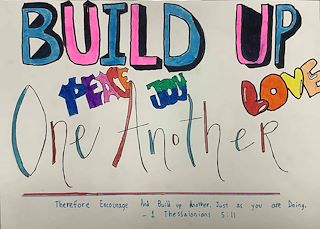 BUILD UP
PEACE JOY LOVE
One Another
Therefore Encourage And Build up Another, Just as you are Doing.
- 1 Thessalonians 5:11